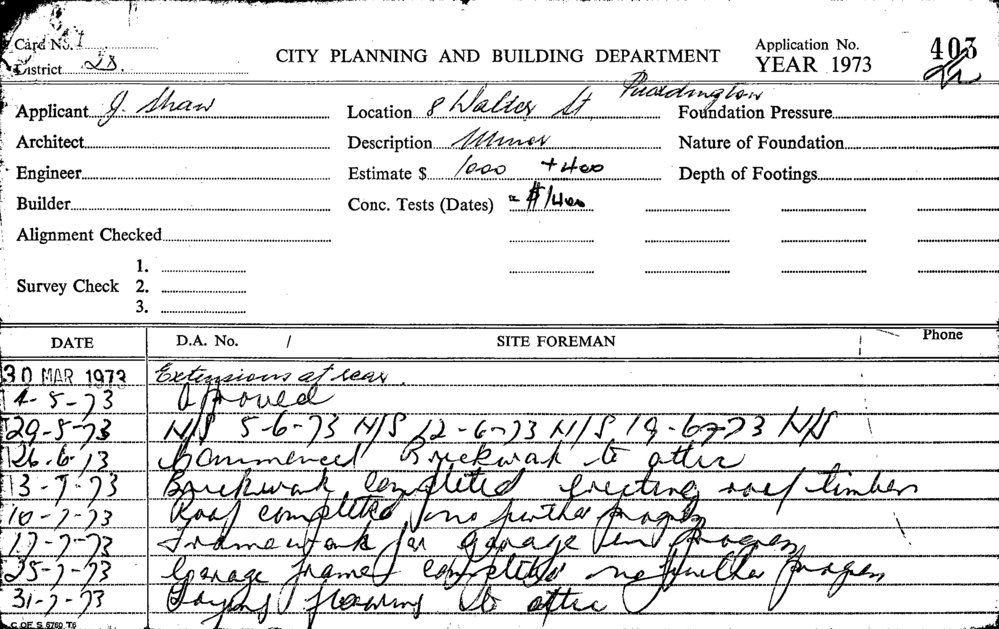 Card No. 1
District 28.
CITY PLANNING AND BUILDING DEPARTMENT
Application No. 403
YEAR 1973
Applicant J. Shaw
Location 8 Walter St Paddington
Foundation Pressure
Architect
Description Minor
Nature of Foundation
Engineer
Estimate $ 1000 + 400
Depth of Footings
Builder
Conc. Tests (Dates) = $1400
Alignment Checked
1.
Survey Check 2.
3.
DATE D.A. No. / SITE FOREMAN Phone
30 MAR 1973 Extensions at rear.
4-5-73 Approved
29-5-73 N/S 5-6-73 N/S 12-6-73 N/S 19-6-73 N/S
26.6.73 Commenced Brickwork to attic
3-7-73 Brickwork completed erecting roof timbers
10-7-73 Roof completed no further progress
17-7-73 Framework for garage in progress
25-7-73 Garage frame completed no further progress
31-7-73 Laying flooring to attic
C OF S 6760 T6